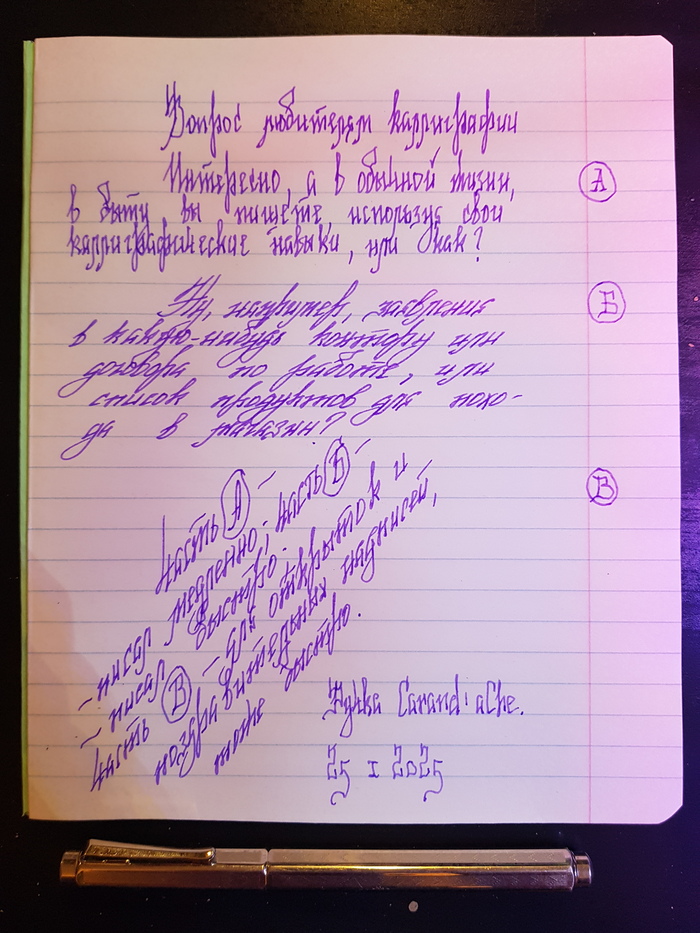 Вопрос любителям каллиграфии
Интересно, а в обычной жизни,
А
в быту вы пишете, используя свои
каллиграфические навыки, или как?
Ну, например, заявления
Б
в какую-нибудь контору или
договора по работе, или
список продуктов для похо-
да в магазин?
В
Часть А –
– писал медленно; часть Б –
– писал быстро.
Часть В – для открыток и
поздравительных надписей,
тоже быстро.
Ручка Carand'aChe.
25 I 2025